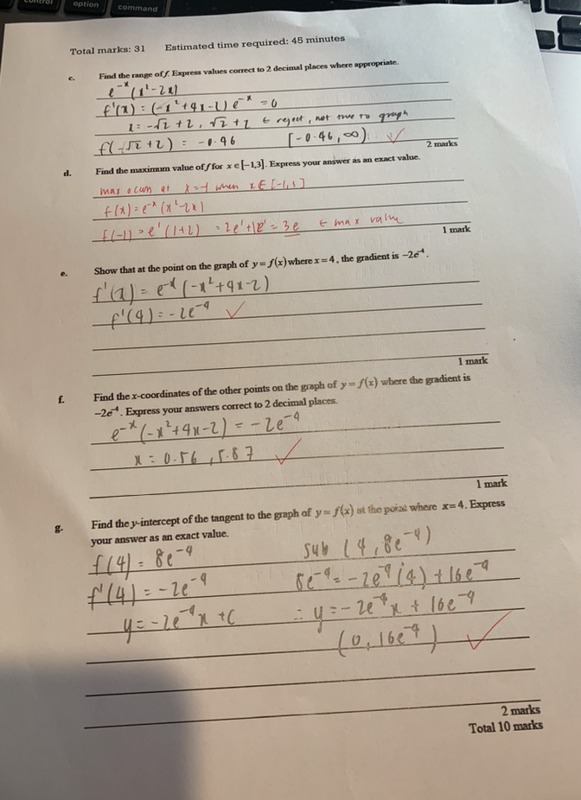 control
option
command
Total marks: 31 Estimated time required: 45 minutes
c. Find the range of f. Express values correct to 2 decimal places where appropriate.
e^-x (x²-2x)
f'(x) = (-x²+4x-2) e^-x = 0
x = -√2 + 2, √2 + 2 ← reject, not true to graph
f(-√2 + 2) = -0.46 [-0.46, ∞) ✓
2 marks
d. Find the maximum value of f for x ∈ [−1,3]. Express your answer as an exact value.
max occurs at x=-1 when x∈[-1,3]
f(x) = e^-x (x²-2x)
f(-1) = e¹(1+2) = 3e ← max value
1 mark
e. Show that at the point on the graph of y = f(x) where x = 4, the gradient is −2e⁻⁴.
f'(x) = e^-x (-x²+4x-2)
f'(4) = -2e⁻⁴ ✓
1 mark
f. Find the x-coordinates of the other points on the graph of y = f(x) where the gradient is
−2e⁻⁴. Express your answers correct to 2 decimal places.
e^-x (-x²+4x-2) = -2e⁻⁴
x = 0.56, 5.87 ✓
1 mark
g. Find the y-intercept of the tangent to the graph of y = f(x) at the point where x = 4. Express
your answer as an exact value.
f(4) = 8e⁻⁴ sub (4, 8e⁻⁴)
f'(4) = -2e⁻⁴ 8e⁻⁴ = -2e⁻⁴(4) + 16e⁻⁴
y = -2e⁻⁴x + c ∴ y = -2e⁻⁴x + 16e⁻⁴
(0, 16e⁻⁴) ✓
2 marks
Total 10 marks